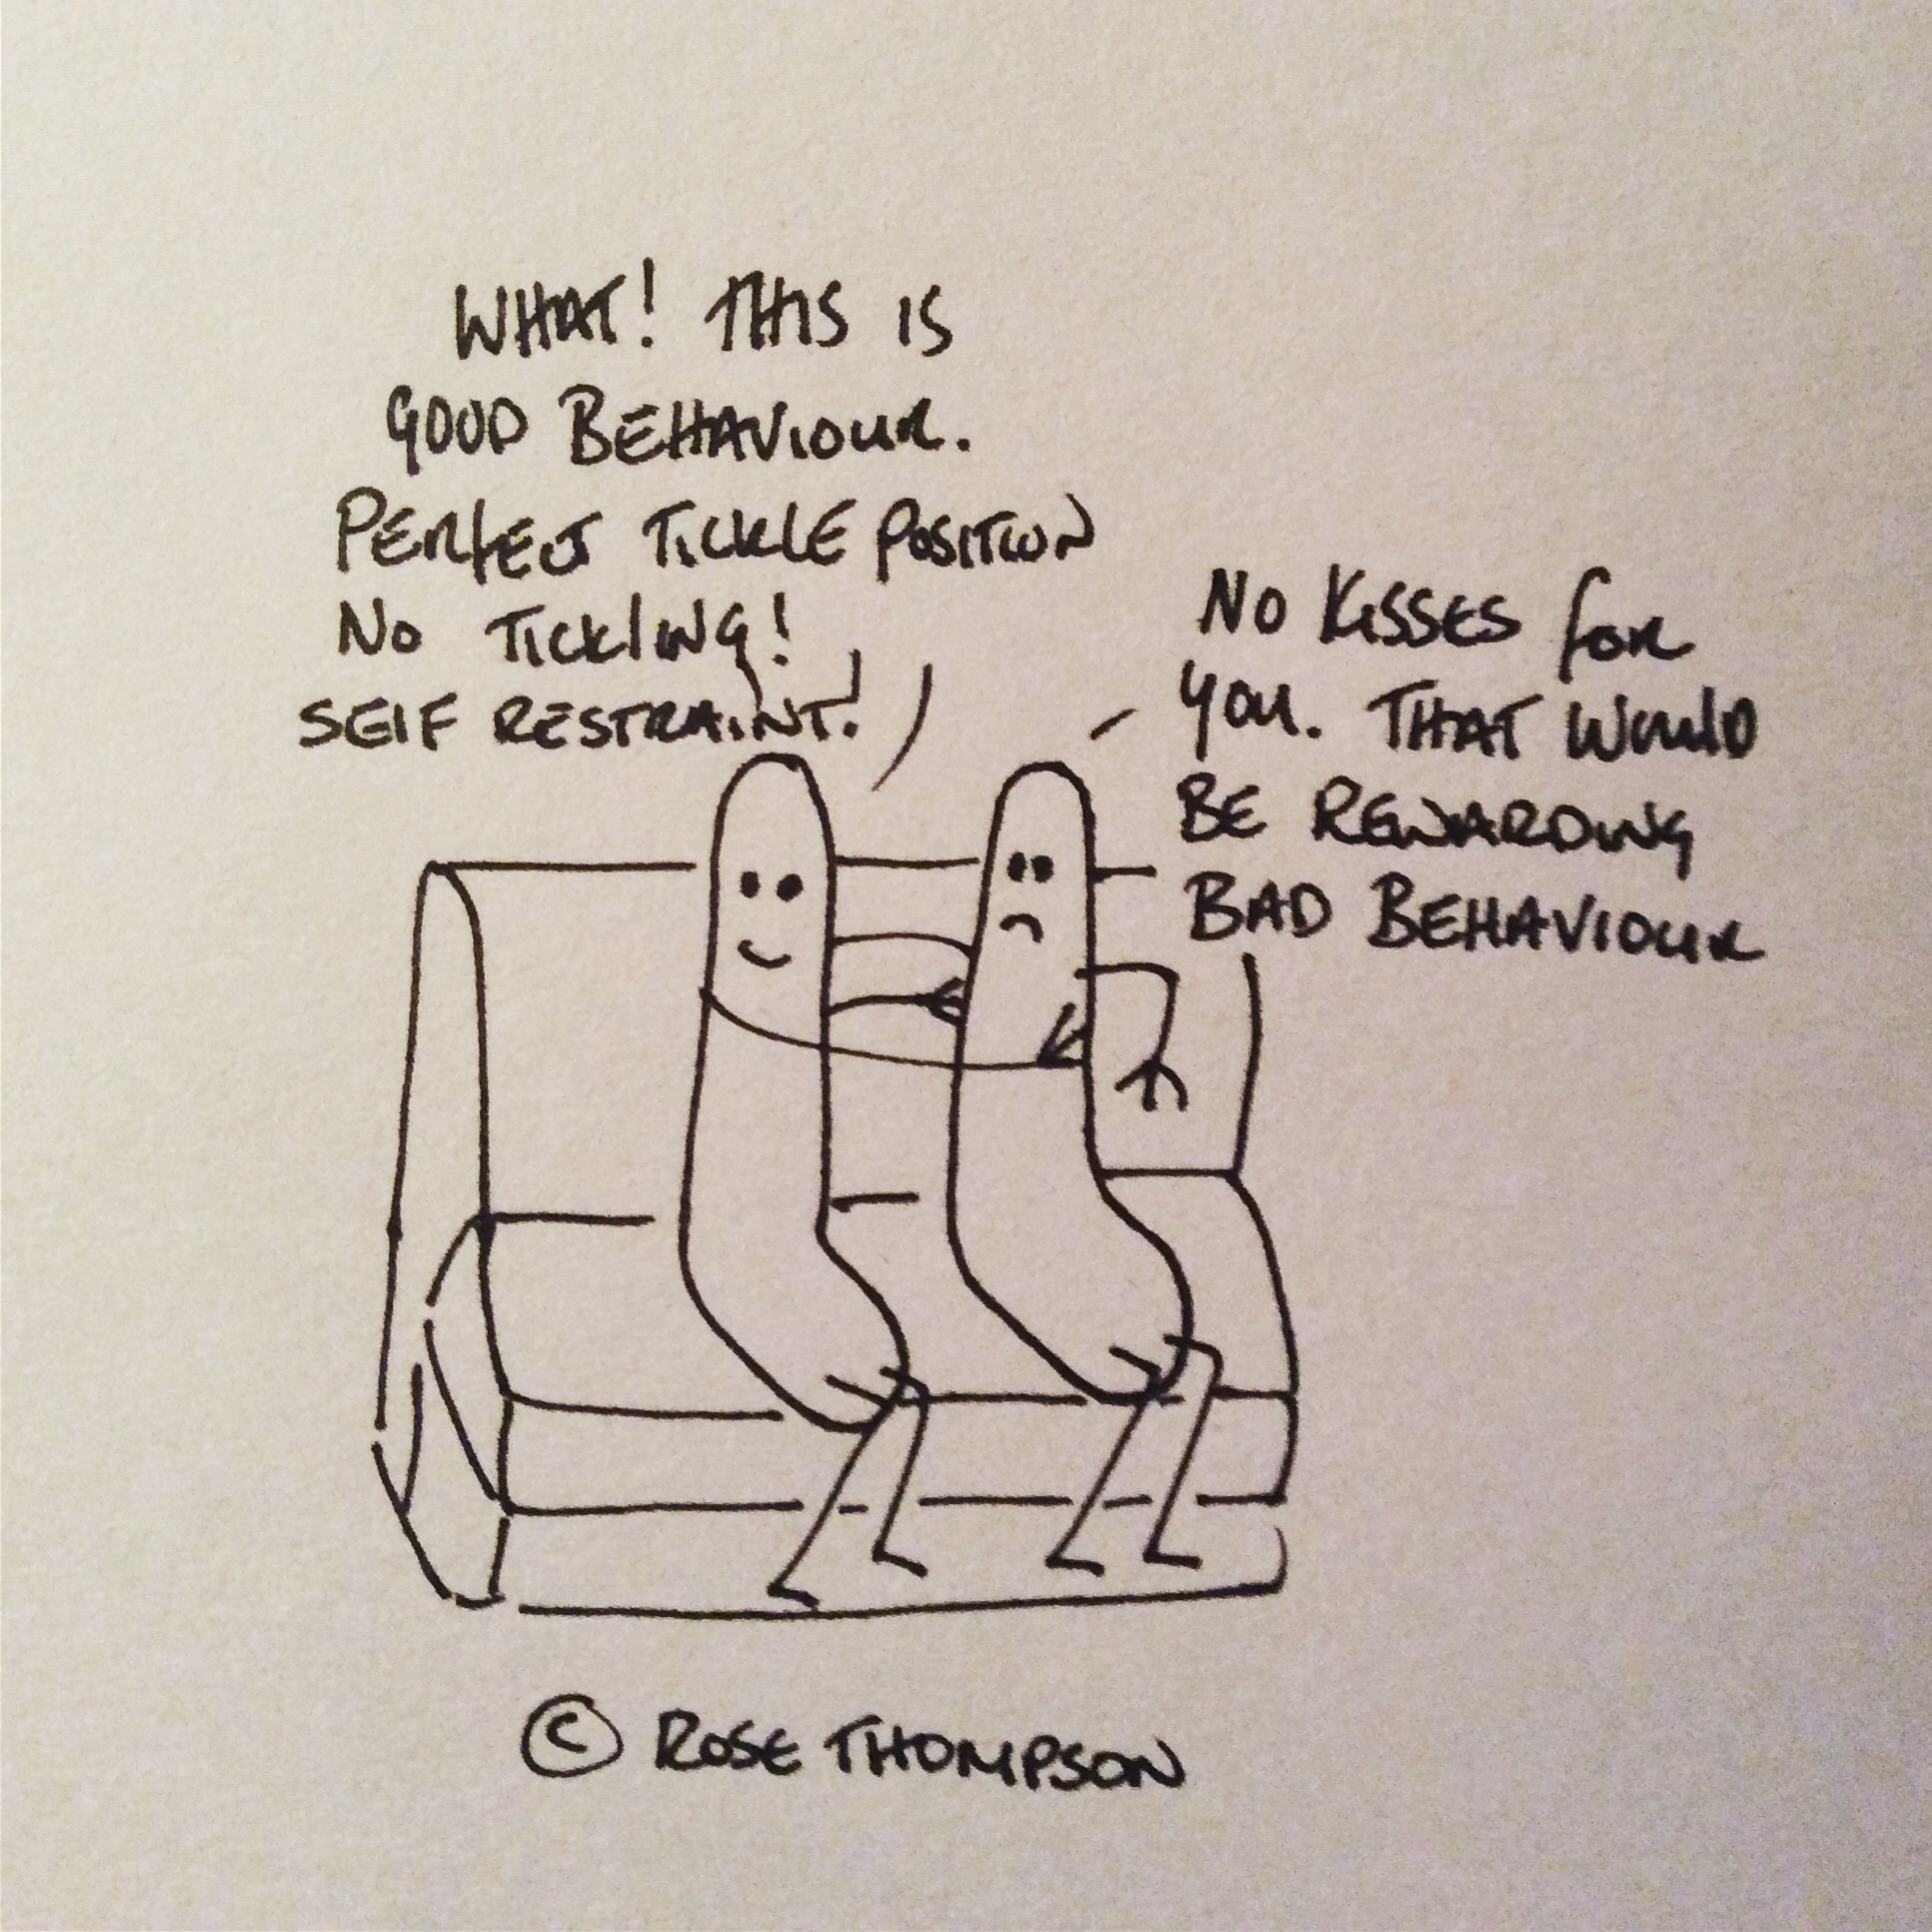 WHAT! THIS IS
GOOD BEHAVIOUR.
PERFECT TICKLE POSITION
NO TICKLING!
SELF RESTRAINT!
NO KISSES FOR
YOU. THAT WOULD
BE REWARDING
BAD BEHAVIOUR
© ROSE THOMPSON